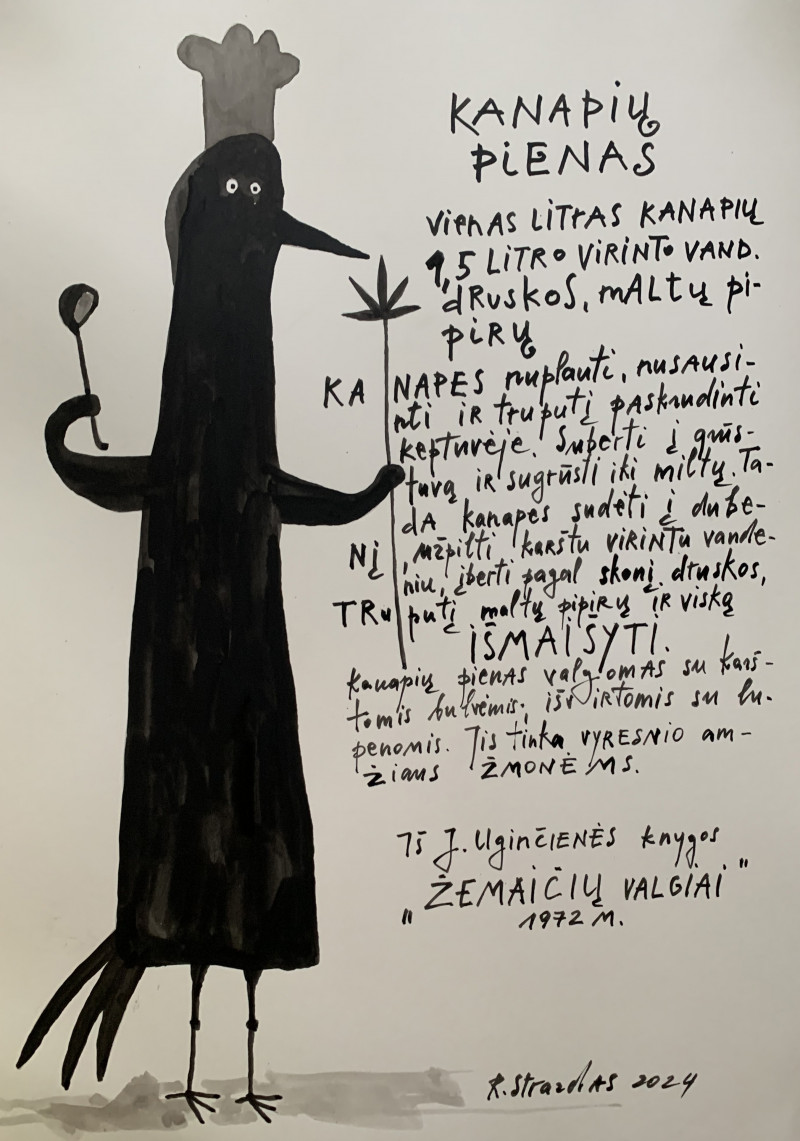 KANAPIŲ
PIENAS
VIENAS LITRAS KANAPIŲ
1,5 LITRO VIRINTO VAND.
DRUSKOS, MALTŲ PI-
PIRŲ
KANAPES nuplauti, nusausi-
nti IR truputį paskrudinti
keptuvėje. Suberti į grūs-
tuvą IR sugrūsti iki miltų. Ta-
dA kanapes sudėti į dube-
NĮ, užpilti karštu VIRINTu vande-
niu, įberti pagal skonį druskos,
TRuputį maltų pipirų IR viską
IŠMAIŠYTI.
Kanapių pienas valgomas su karš-
tomis bulvėmis, išvIRtomis su lu-
penomis. Jis tinka VYRESNIO am-
žiaus ŽMONĖMS.
Iš J. UginČIENĖS knygos
„ŽEMAIČIŲ VALGIAI"
1972 M.
R. StrazdAS 2024